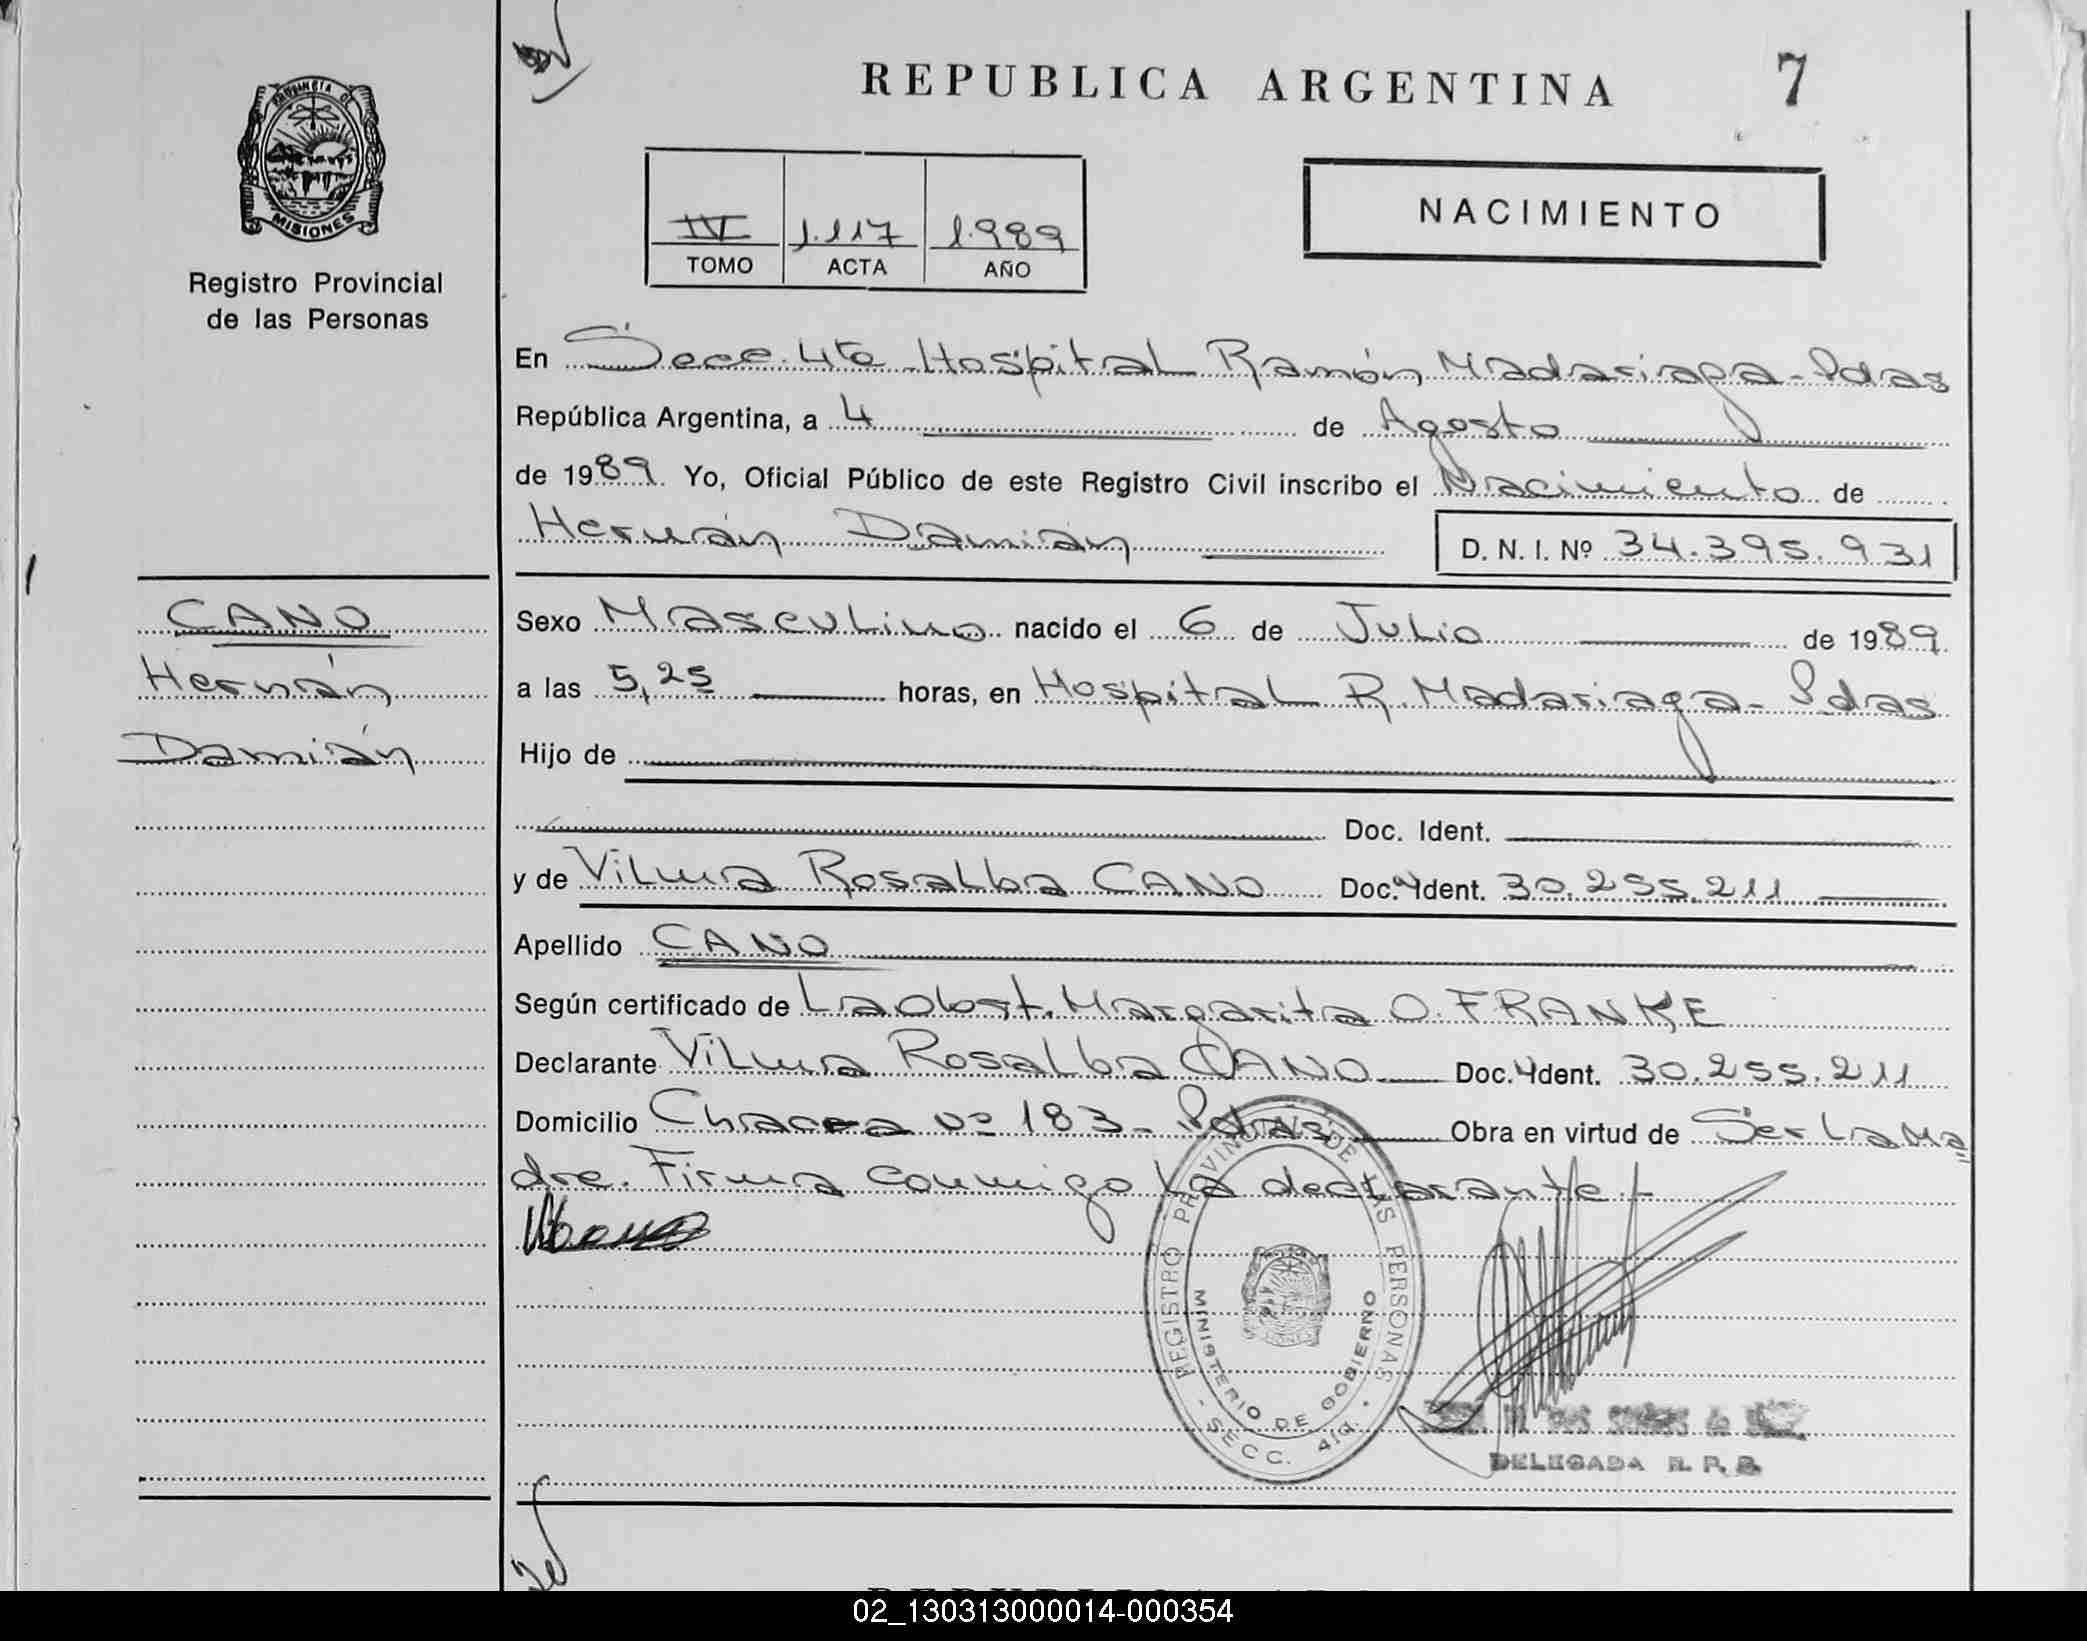 REPUBLICA ARGENTINA
7
PROVINCIA DE
MISIONES
Registro Provincial
de las Personas
IV 1.117 1.989
TOMO ACTA AÑO
NACIMIENTO
En Secc. 4ta Hospital Ramón Madariaga - Pdas
República Argentina, a 4 de Agosto
de 1989. Yo, Oficial Público de este Registro Civil inscribo el Nacimiento de
Hernán Damián
D. N. I. Nº 34.395.931
CANO
Hernán
Damián
Sexo Masculino nacido el 6 de Julio de 1989.
a las 5,25 horas, en Hospital R. Madariaga - Pdas
Hijo de
Doc. Ident.
y de Vilma Rosalba CANO Doc. Ident. 30.255.211
Apellido CANO
Según certificado de La Obst. Margarita O. FRANKE
Declarante Vilma Rosalba CANO Doc. Ident. 30.255.211
Domicilio Chacra nº 183 - Pdas Obra en virtud de Ser La Ma
dre. Firma conmigo La declarante.-
REGISTRO PROVINCIAL DE LAS PERSONAS
MINISTERIO DE GOBIERNO
SECC. 4ta.
DELEGADA R. P. P.
02_130313000014-000354